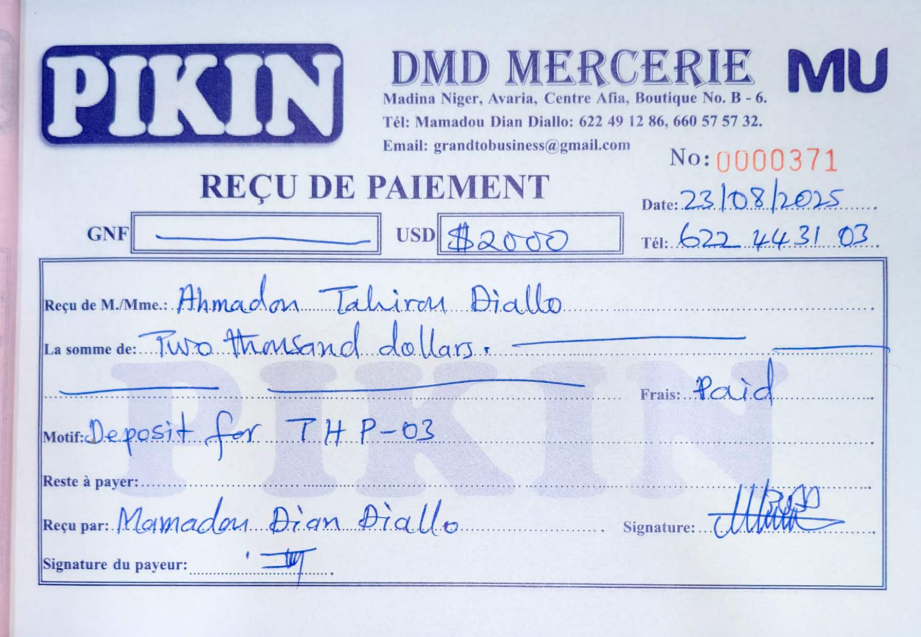 PIKIN
DMD MERCERIE
MU
Madina Niger, Avaria, Centre Afia, Boutique No. B - 6.
Tél: Mamadou Dian Diallo: 622 49 12 86, 660 57 57 32.
Email: grandtobusiness@gmail.com
No: 0000371
REÇU DE PAIEMENT
Date: 23/08/2025
GNF
USD $2000
Tél: 622 44 31 03
Reçu de M./Mme.: Ahmadou Tahirou Diallo
La somme de: Two thousand dollars.
Frais: Paid
PIKIN
Motif: Deposit for THP-03
Reste à payer:
Reçu par: Mamadou Dian Diallo
Signature:
Signature du payeur: